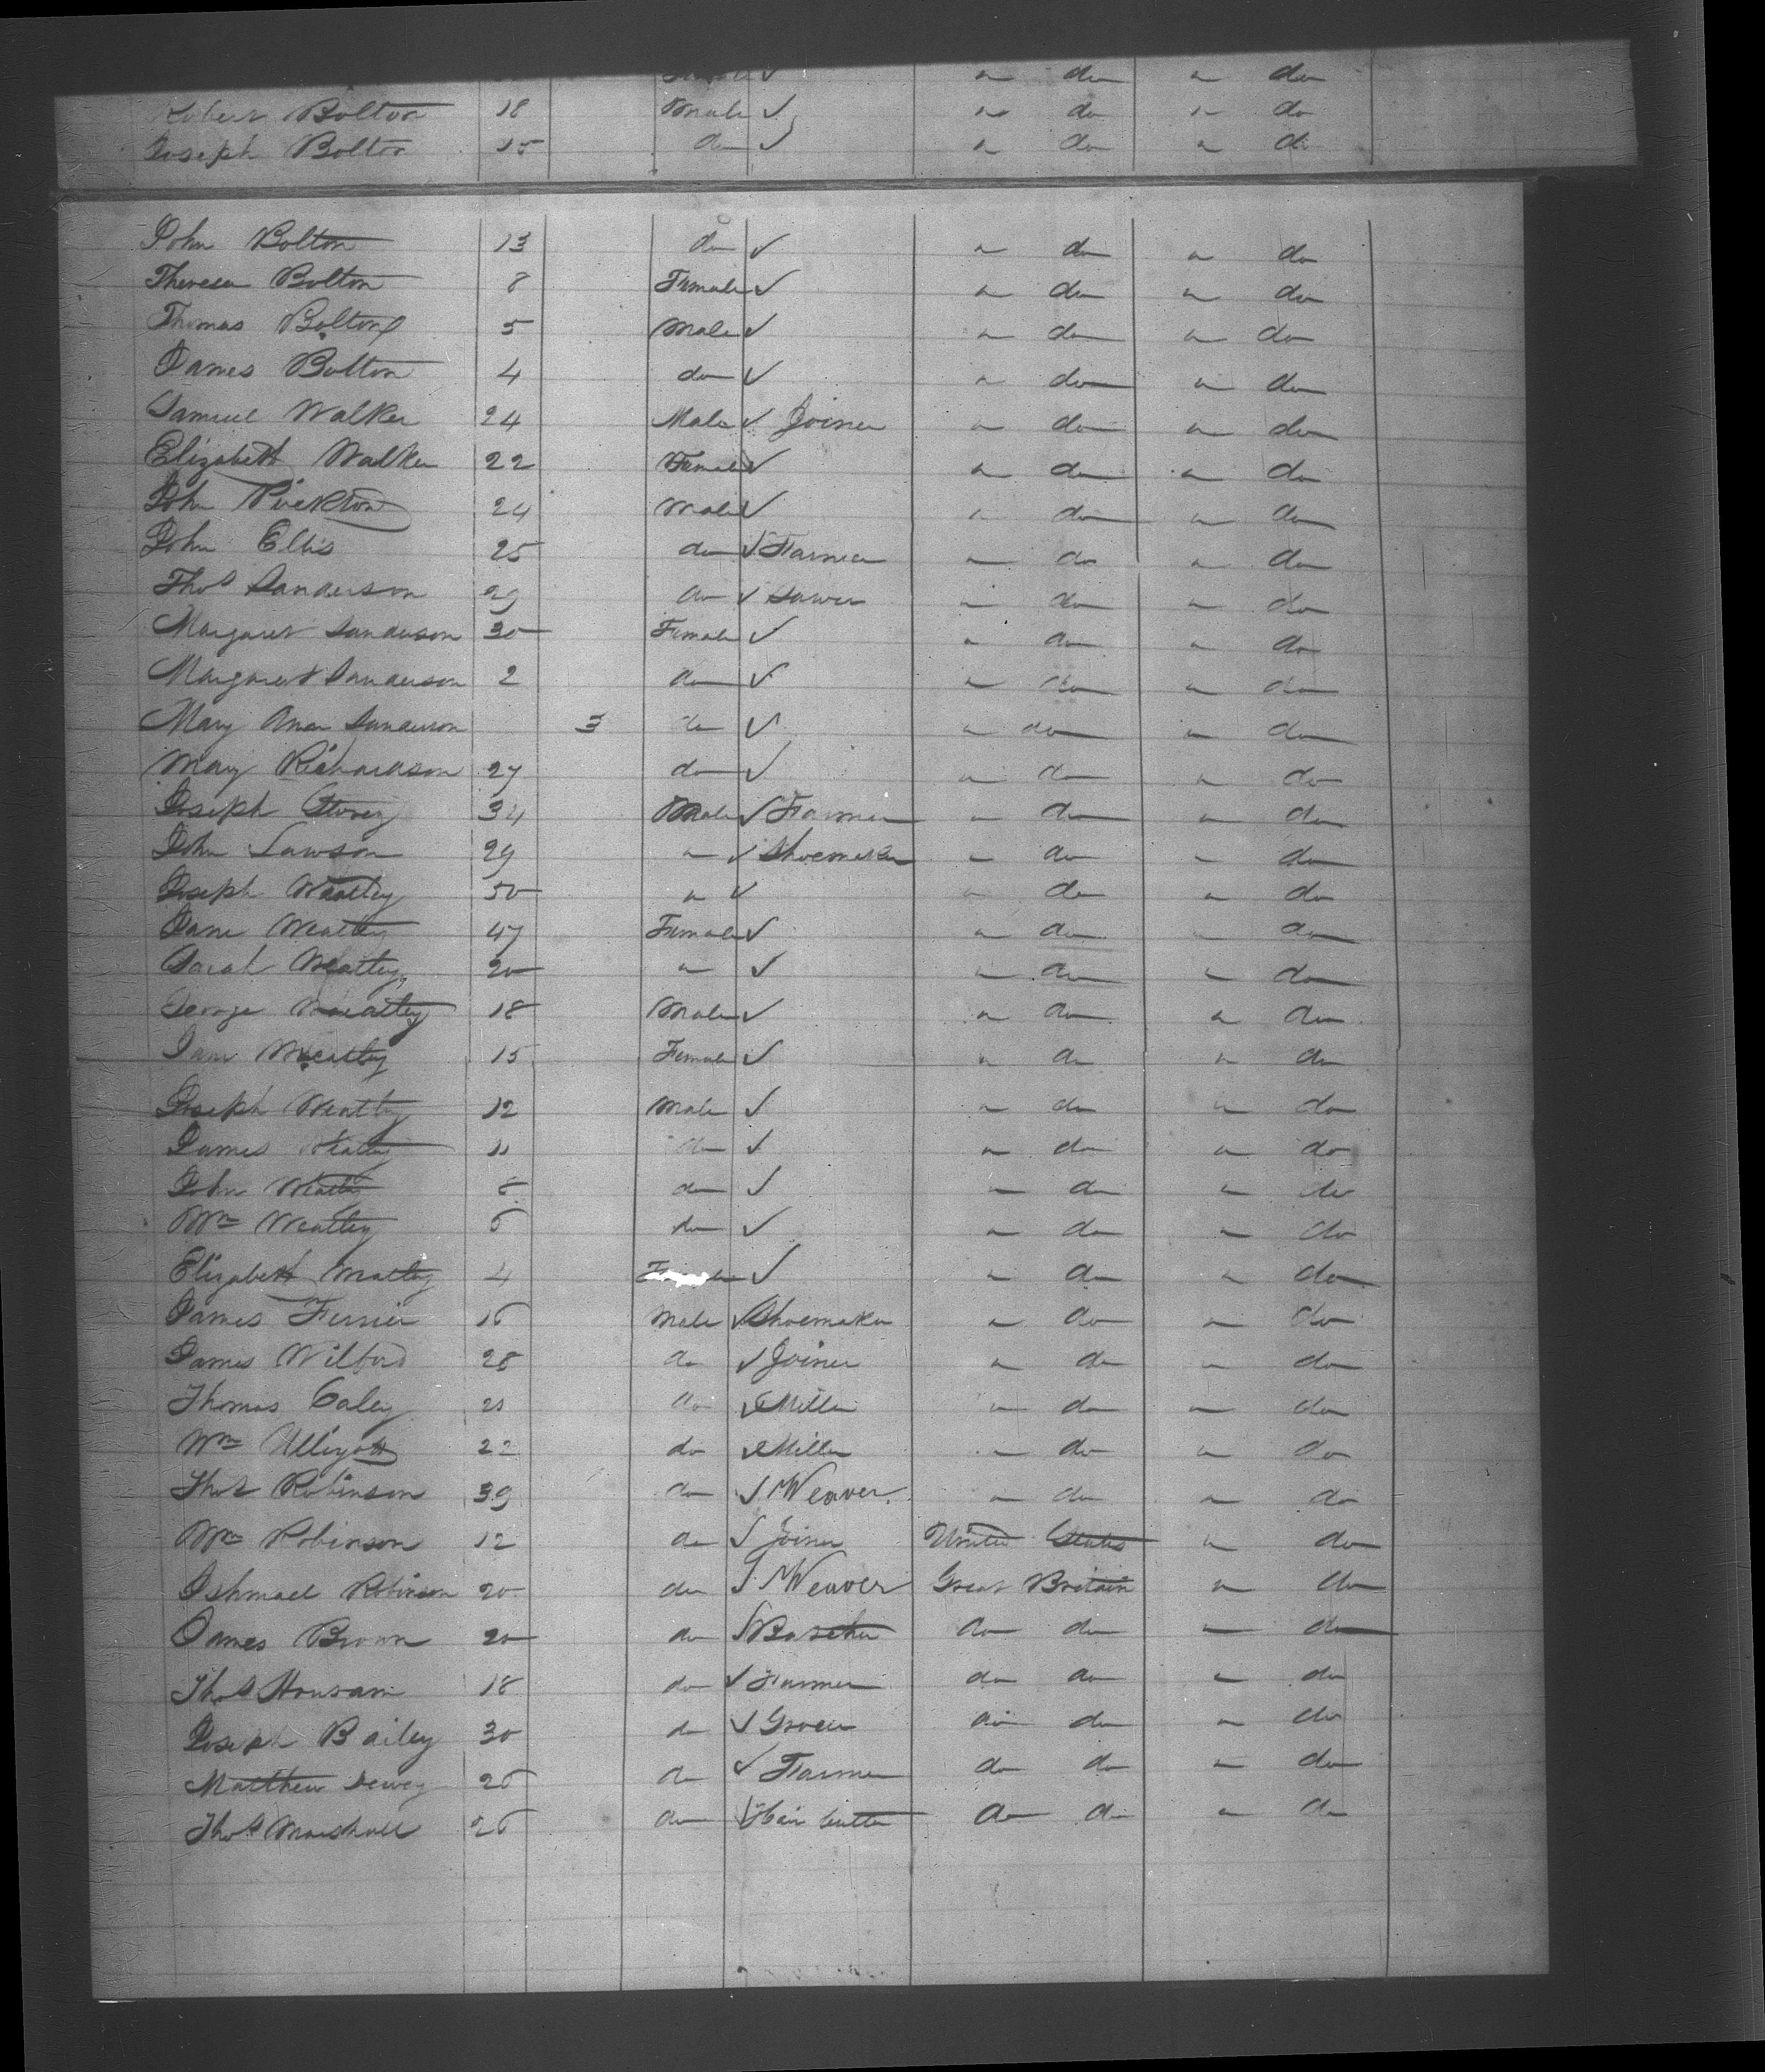 Female ✓ " do " do
Robert Bolton 18 Male ✓ " do " do
Joseph Bolton 15 do ✓ " do " do
John Bolton 13 do ✓ " do " do
Theresa Bolton 8 Female ✓ " do " do
Thomas Bolton 5 Male ✓ " do " do
James Bolton 4 do ✓ " do " do
Samuel Walker 24 Male ✓ Joiner " do " do
Elizabeth Walker 22 Female ✓ " do " do
John 24 Male ✓ " do " do
John Ellis 25 do ✓ Farmer " do " do
Thos Sanderson 29 do ✓ Sawer " do " do
Margaret Sanderson 30 Female ✓ " do " do
Margaret Sanderson 2 do ✓ " do " do
Mary Ann Sanderson 3 do ✓ " do " do
Mary Richardson 27 do ✓ " do " do
Joseph Storey 34 Male ✓ Farmer " do " do
John Lawson 29 " ✓ Shoemaker " do " do
Joseph Weatley 50 " ✓ " do " do
Jane Weatley 47 Female ✓ " do " do
Sarah Weatley 20 " ✓ " do " do
George Weatley 18 Male ✓ " do " do
Jane Weatley 15 Female ✓ " do " do
Joseph Weatley 12 Male ✓ " do " do
James Weatley 11 do ✓ " do " do
John Weatley 8 do ✓ " do " do
Wm Weatley 6 do ✓ " do " do
Elizabeth Weatley 4 Female ✓ " do " do
James Ferrier 16 Male ✓ Shoemaker " do " do
James Wilford 28 do ✓ Joiner " do " do
Thomas Caley 21 do ✓ Miller " do " do
Wm Ulliyott 22 do ✓ Miller " do " do
Thos Robinson 39 do ✓ Weaver " do " do
Wm Robinson 12 do ✓ Joiner United States " do
Ishmael Robinson 20 do ✓ Weaver Great Britain " do
James Brown 20 do ✓ do do " do
Thos Housam 18 do ✓ Farmer do do " do
Joseph Bailey 30 do ✓ Grocer do do " do
Matthew Dewey 26 do ✓ Farmer do do " do
Thos Marshall 26 do ✓ Hair Cutter do do " do